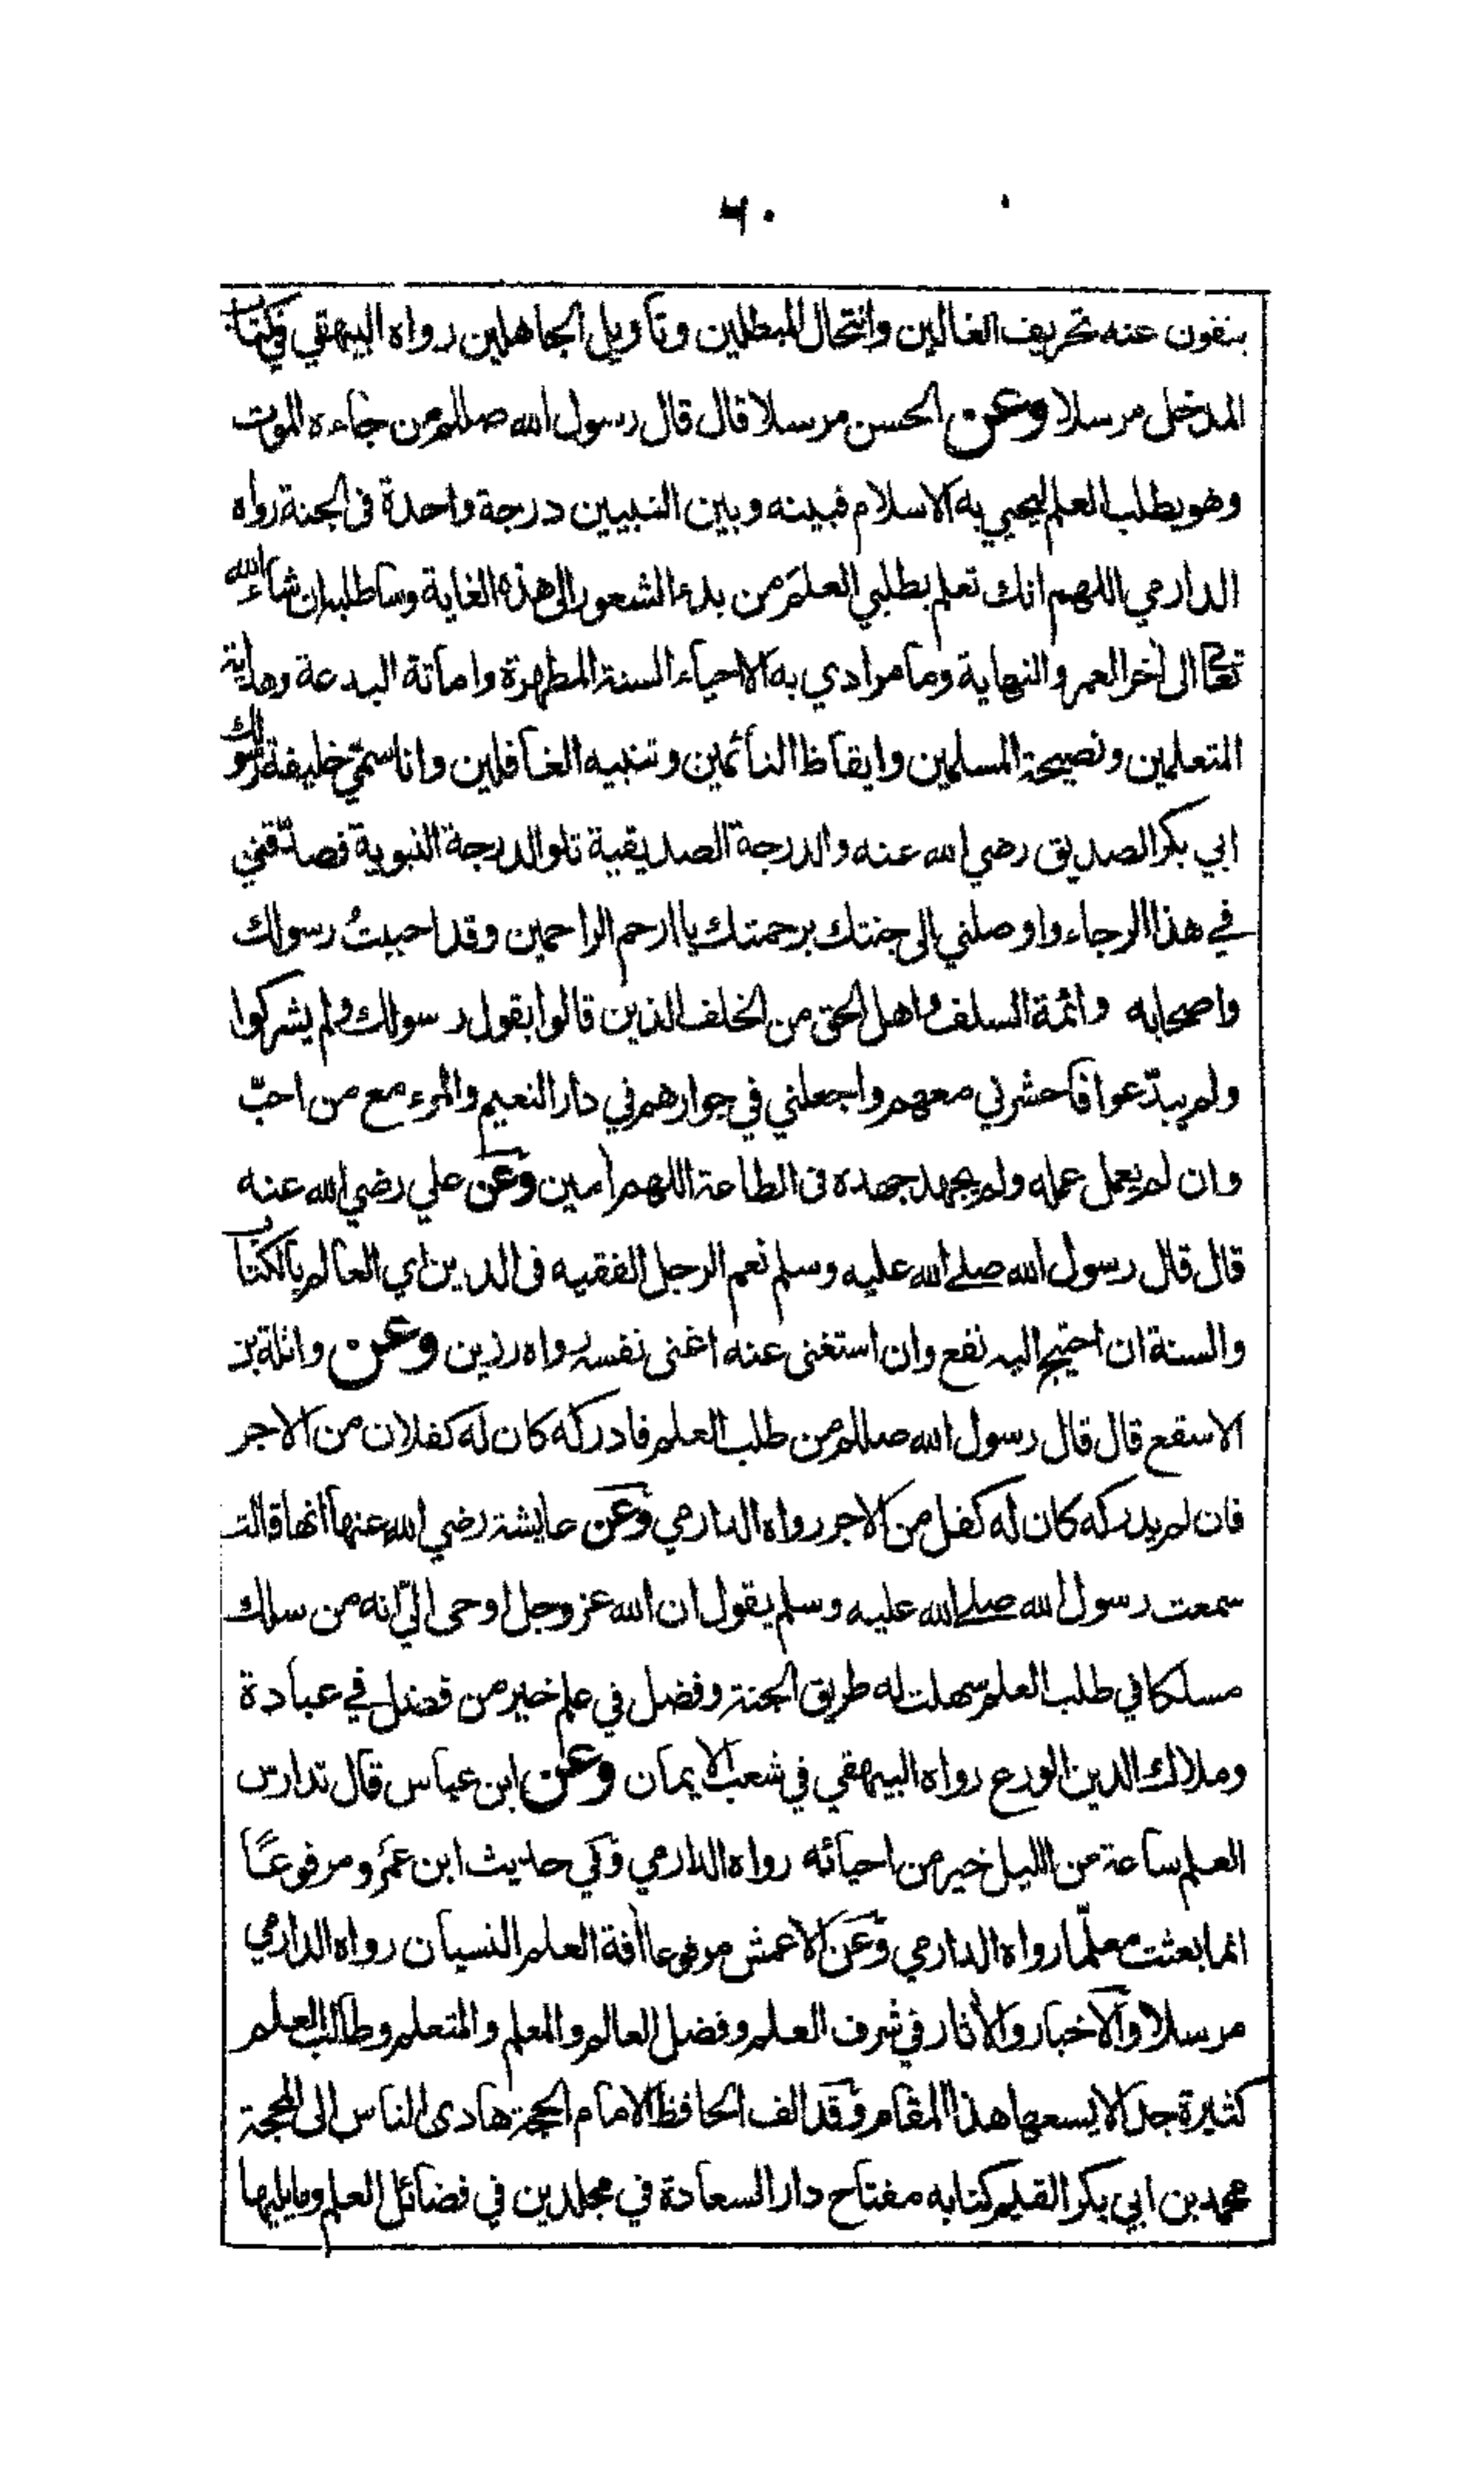 ٦٠
ينفون عنه تحريف الغالين وانتحال المبطلين وتأويل الجاهلين رواه البيهقي في كتاب
المدخل مرسلا وعن الحسن مرسلا قال قال رسول الله صللم من جاءه الموت
وهو يطلب العلم ليحيي به الاسلام فبينه وبين النبيين درجة واحدة فى الجنة رواه
الدارمي اللهم انك تعلم بطلبي العلم من بدء الشعور الى هذه الغاية وساطلبه ان شاء الله
تعالى الى اخر العمر والنهاية وما مرادي به الا احياء السنة المطهرة واماتة البدعة وهداية
المتعلمين ونصيحة المسلمين وايقاظ النائمين وتنبيه الغافلين وانا سميّ خليفة رسولك
ابي بكر الصديق رضي الله عنه والدرجة الصديقية تلو الدرجة النبوية فصدّقني
في هذا الرجاء واوصلني الى جنتك برحمتك يا ارحم الراحمين وقد احببتُ رسولك
واصحابه وائمة السلف واهل الحق من الخلف الذين قالوا بقول رسولك ولم يشركوا
ولم يبدّعوا فاحشرني معهم واجعلني في جوارهم في دار النعيم والمرء مع من احبّ
وان لم يعمل عمله ولم يجهد جهده فى الطاعة اللهم امين وعن علي رضي الله عنه
قال قال رسول الله صلى الله عليه وسلم نعم الرجل الفقيه فى الدين اي العالم بالكتاب
والسنة ان احتيج اليه نفع وان استغنى عنه اغنى نفسه رواه رزين وعن واثلة بن
الاسقع قال قال رسول الله صللم من طلب العلم فادركه كان له كفلان من الاجر
فان لم يدركه كان له كفل من الاجر رواه الدارمي وعن عايشة رضي الله عنها انها قالت
سمعت رسول الله صلى الله عليه وسلم يقول ان الله عز وجل اوحى اليّ انه من سلك
مسلكا في طلب العلم سهلت له طريق الجنة وفضل في علم خير من فضل في عبادة
وملاك الدين الورع رواه البيهقي في شعب الايمان وعن ابن عباس قال تدارس
العلم ساعة من الليل خير من احيائه رواه الدارمي وفي حديث ابن عمرو مرفوعًا
انما بعثت معلّما رواه الدارمي وعن الاعمش مرفوعا افة العلم النسيان رواه الدارمي
مرسلا والاخبار والاثار في شرف العلم وفضل العالم والمعلم والمتعلم وطالب العلم
كثيرة جدا لا يسعها هذا المقام وقد الف الحافظ الامام الحجة هادى الناس الى المحجة
محمد بن ابي بكر القيم كتابه مفتاح دار السعادة في مجلدين في فضائل العلم وما يليها